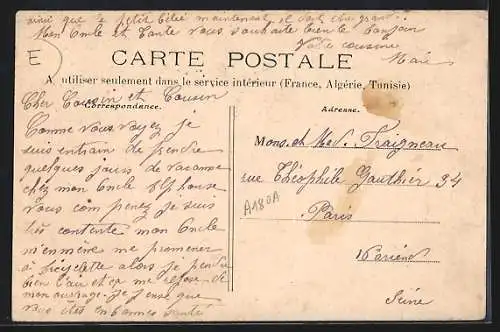 ainsi que le petit bébé maintenant il doit être grand.
Mon Oncle et Tante vous souhaite bien le bonjour
Votre cousine
Marie
E
CARTE POSTALE
A utiliser seulement dans le service intérieur (France, Algérie, Tunisie)
Correspondance.
Adresse.
Cher Cousin et Cousin
Comme vous voyez je
suis entrain de pendre
quelques jours de vacance
chez mon Oncle Alphonse
vous com penez je suis
très contente mon Oncle
m'enmène me promener
à bicyclette alors je
bien l'air et ça me repose de
mon ouvrage je pense que
vous êtes en bonnes santé
Mons. et Mad. Traigneau
rue Théophile Gauthier 34
Paris
Seine
A180A